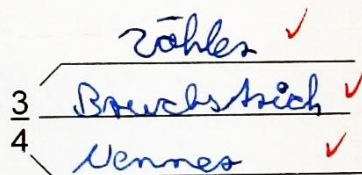 Zähler
3
Bruchstrich
4
Nenner